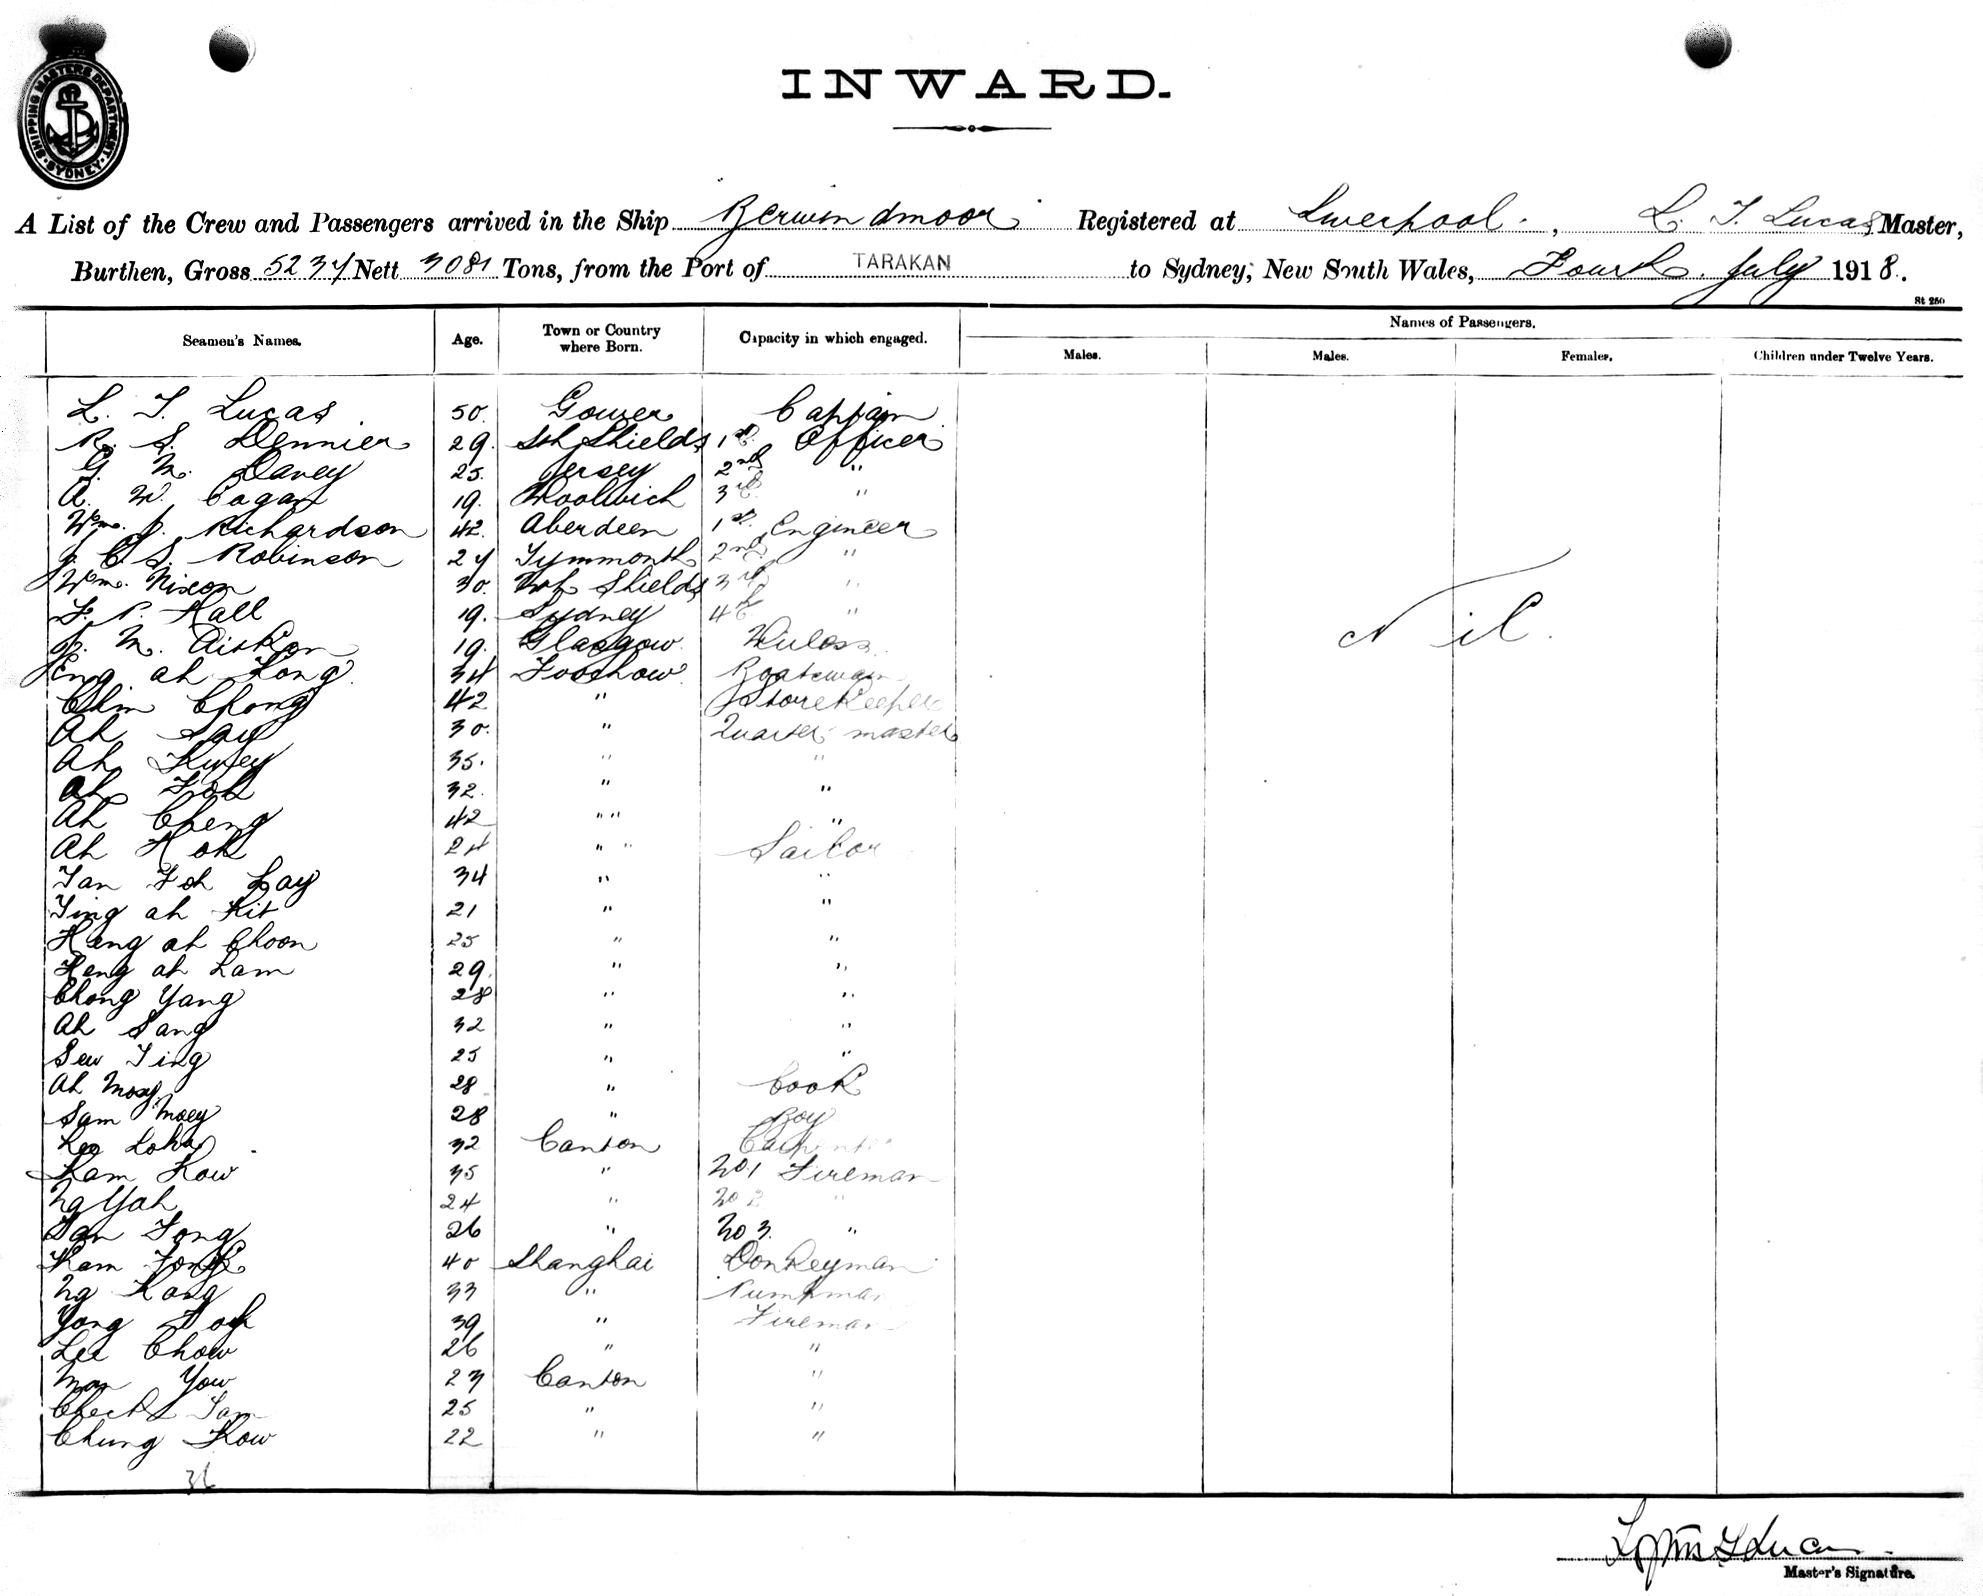 SHIPPING MASTERS DEPARTMENT
SYDNEY
INWARD.
A List of the Crew and Passengers arrived in the Ship Berwindmoor Registered at Liverpool, L. T. Lucas Master,
Burthen, Gross 5237 Nett 3081 Tons, from the Port of TARAKAN to Sydney, New South Wales, Fourth July 1918.
St 250
Seamen's Names. Age. Town or Country where Born. Capacity in which engaged. Names of Passengers.
Males. Males. Females. Children under Twelve Years.
L. T. Lucas 50. Gower Captain
R. S. Dennier 29. Sth Shields 1st Officer
G. M. Davey 25. Jersey 2nd "
A. W. Cogan 19. Woolwich 3rd "
Wm. J. Richardson 42. Aberdeen 1st Engineer
J. C. S. Robinson 27 Tynmonth 2nd "
Wm. Nixon 30. Nth Shields 3rd "
F. P. Hall 19. Sydney 4th "
J. M. Aitken 19. Glasgow Wireless
Eng ah Tong 34 Foochow Boatswain
Chin Chong 42 " Storekeeper
Ah Say 30. " Quarter master
Ah 35. " "
Ah Foh 32. " "
Ah Cheng 42 " " "
Ah Hok 24 " " Sailor
Tan Foh Lay 34 " "
Ting ah Kit 21 " "
Heng ah Choon 25 " "
Heng ah Lam 29. " "
Chong Yang 28 " "
Ah Sang 32 " "
Sew Ting 25 " "
Ah Moey 28 " Cook
Sam Moey 28 " Boy
Lee 32 Canton Carpenter
Kam Kow 35 " No 1 Fireman
Ng Yah 24 " No 2 "
Tan Fong 26 " No 3. "
Kam 40 Shanghai Donkeyman
Ng Kong 33 " Pumpman
Yong 39 " Fireman
Lee Chow 26 " "
Man You 23 Canton "
Check Tam 25 " "
Chung Kow 22 " "
36
Nil.
Lucas
Master's Signature.